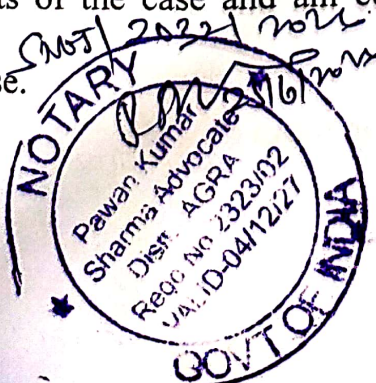 ts of the case and am co
se.
NOTARY
Pawan Kumar
Sharma Advocate
Distt. AGRA
Regd No 2323/02
VALID-04/12/27
GOVT OF INDIA